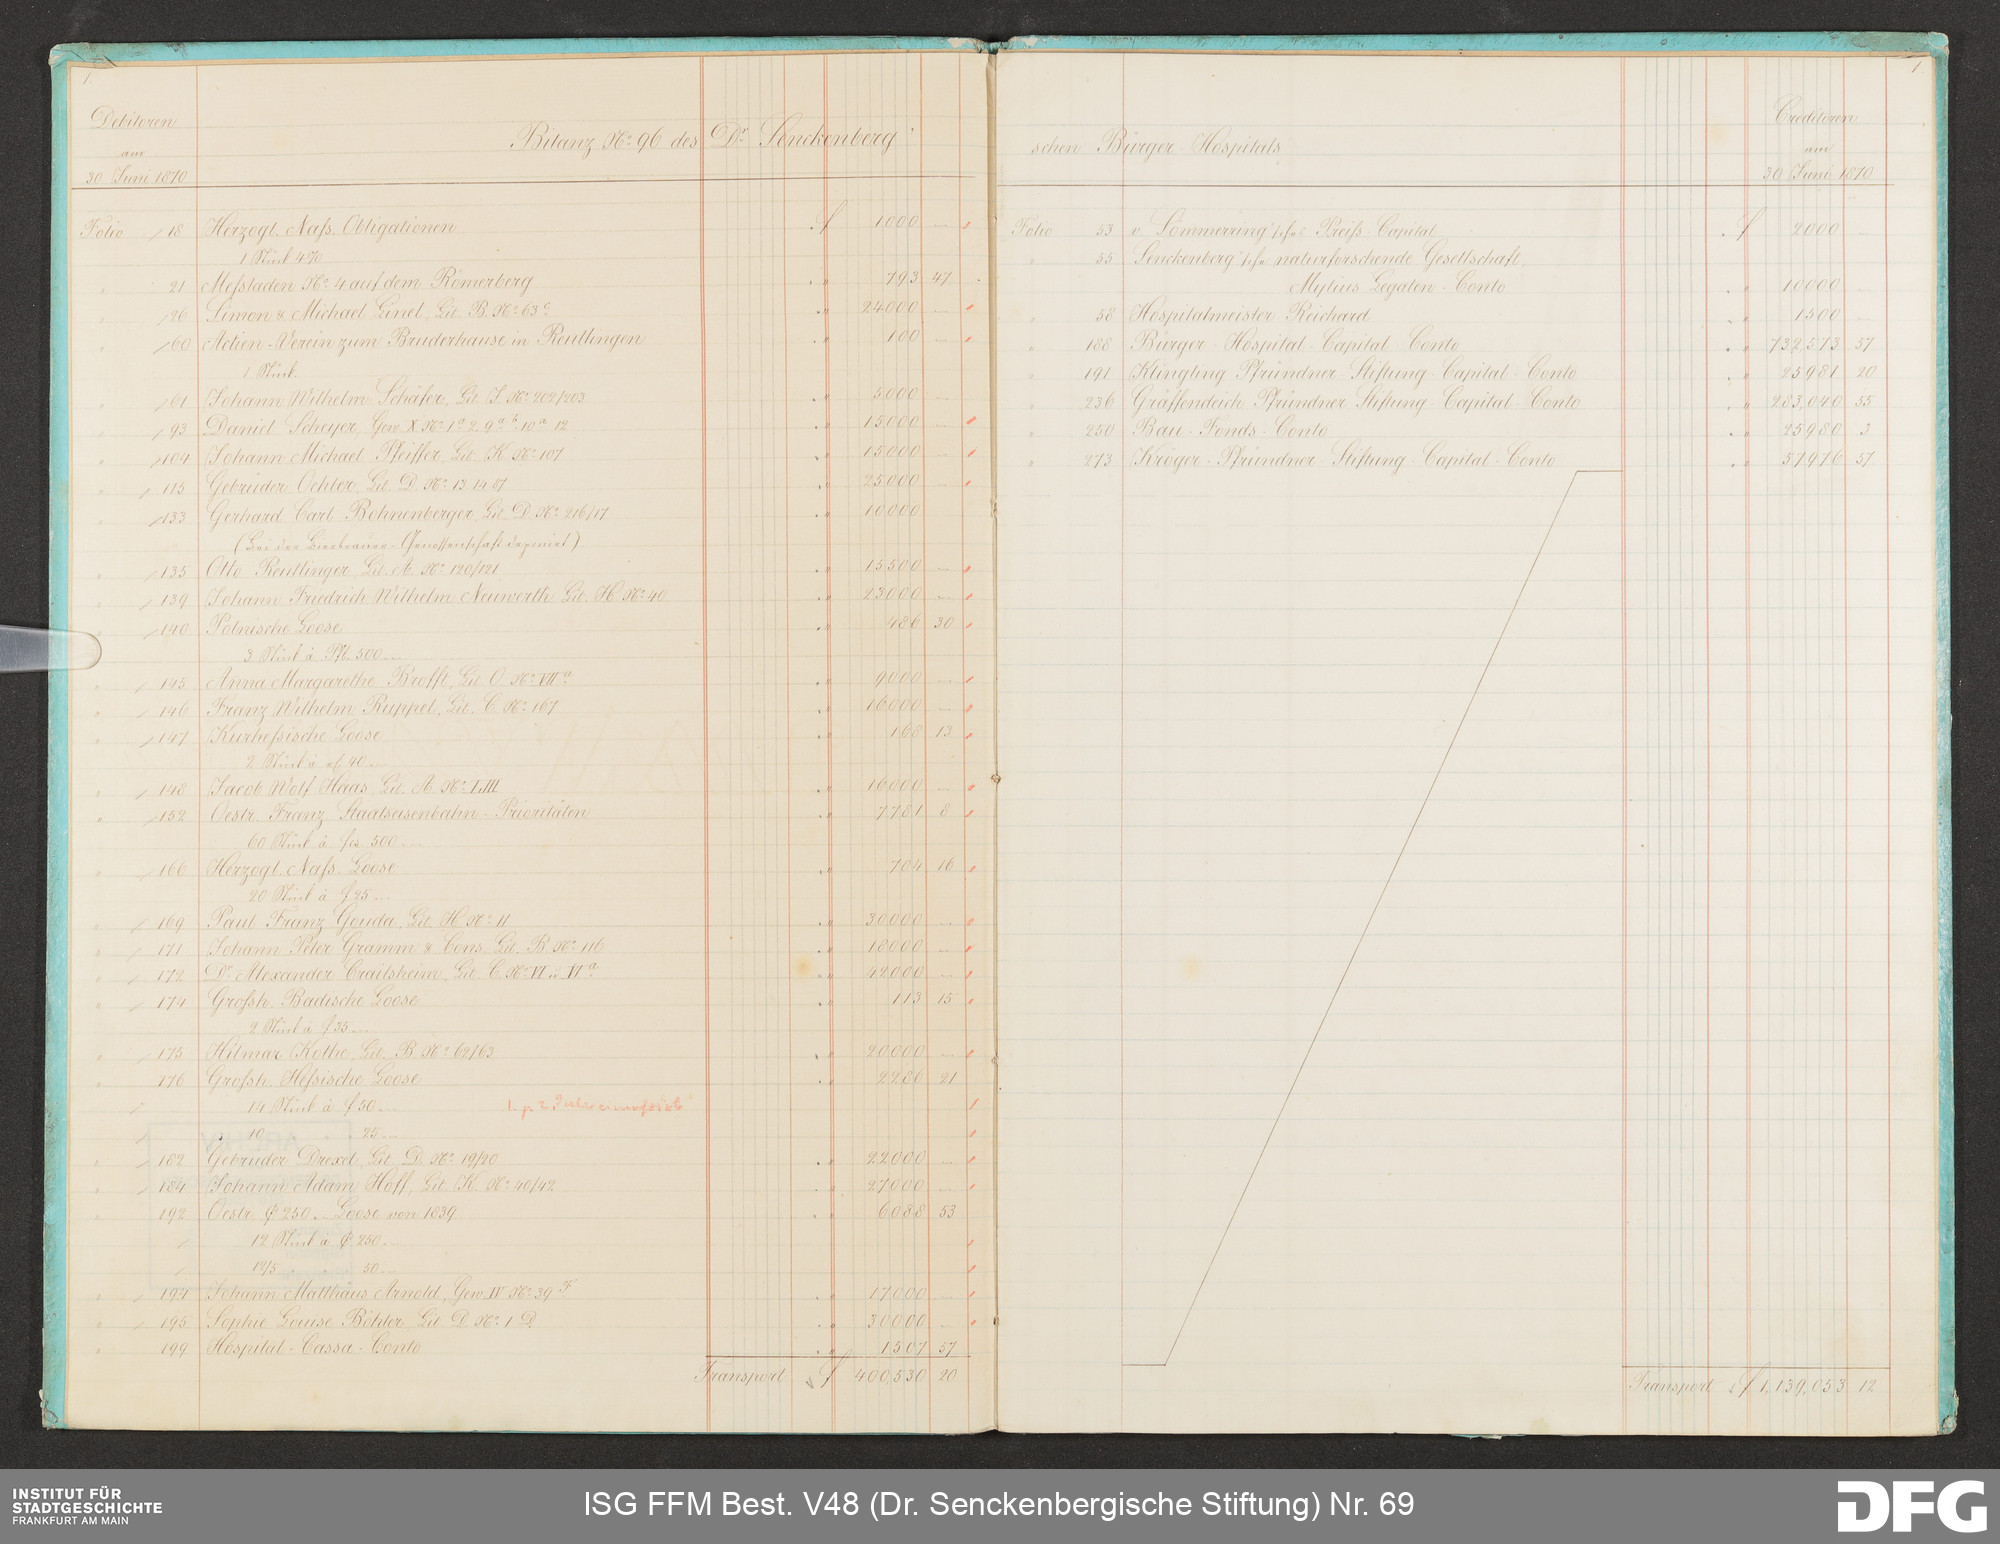 1.
Debitoren
am
30 Juni 1870
Bilanz No. 96 des Dr. Senckenberg'
Folio 18 Herzogl. Nass. Obligationen f 1000 —
1 Stück 4%
" 21 Messladen No. 4 auf dem Römerberg " 793 47
" 26 Simon & Michael Ginel, Lit. B. No. 63 c " 24000 —
" 60 Actien-Verein zum Bruderhause in Reutlingen " 100 —
1 Stück
" 61 Johann Wilhelm Schäfer, Lit. J. No. 202/203 " 5000 —
" 93 Daniel Scheyer, Gew. X No. 1a 2. 9a b 10a 12 " 15000 —
" 104 Johann Michael Pfeiffer, Lit. K. No. 107 " 15000 —
" 115 Gebrüder Oehler, Lit. D. No. 13 14 87 " 25000 —
" 133 Gerhard Carl Bohnenberger, Lit. D. No. 216/17 " 10000
(bei der Bierbrauer-Genossenschaft deponirt)
" 135 Otto Reutlinger, Lit. A. No. 120/121 " 15500 —
" 139 Johann Friedrich Wilhelm Neuwerth Lit. H. No. 40 " 23000 —
" 140 Polnische Loose " 486 30
3 Stück à Pfl. 500 —
" 145 Anna Margarethe Brofft, Lit. O. No. VII a " 9000 —
" 146 Franz Wilhelm Ruppel, Lit. C. No. 167 " 16000 —
" 147 Kurhessische Loose " 168 13
2 Stück à 40 —
" 148 Jacob Wolf Haas, Lit. A. No. I, III " 16000 —
" 152 Oestr. Franz. Staatseisenbahn-Prioritäten " 7781 8
60 Stück à fcs 500 —
" 166 Herzogl. Nass. Loose " 704 16
20 Stück à f 25 —
" 169 Paul Franz Gouda, Lit. H. No. 11 " 30000 —
" 171 Johann Peter Gramm & Cons. Lit. B. No. 116 " 18000 —
" 172 Dr. Alexander Crailsheim, Lit. C. No. VI u. VI a " 42000 —
" 174 Grossh. Badische Loose " 113 15
2 Stück à f 35 —
" 175 Hilmar Kothe, Lit. B. No. 62/63 " 20000 —
" 176 Grossh. Hessische Loose " 2286 21
14 Stück à f 50 —
" 10 " " 25 —
" 182 Gebrüder Drexel, Lit. D. No. 19/20 " 22000 —
" 184 Johann Adam Hoff, Lit. K. No. 40/42 " 27000 —
" 192 Oestr. f 250 — Loose von 1839 " 6088 53
12 Stück à f 250 —
12/5 " " 50 —
" 194 Johann Matthäus Arnold, Gew. IV No. 39 F " 17000 —
" 195 Sophie Louise Böhler, Lit. D. No. 1 D " 30000 —
" 199 Hospital-Cassa-Conto " 1507 57
Transport f 400,530 20
1.
Creditoren
am
30 Juni 1870
schen Bürger-Hospitals
Folio 53 v. Sömmerring'sche Preiss-Capital f 2000 —
" 55 Senckenberg'sche naturforschende Gesellschaft
Mylius Legaten-Conto " 10000 —
" 58 Hospitalmeister Reichard " 1500 —
" 188 Bürger-Hospital-Capital-Conto " 732,573 57
" 191 Klingling Pfründner-Stiftung-Capital-Conto " 25981 20
" 236 Gräffendeich Pfründner Stiftung-Capital-Conto " 283,040 55
" 250 Bau-Fonds-Conto " 25980 3
" 273 Kröger-Pfründner-Stiftung-Capital-Conto " 57976 57
Transport f 1,139,053 12
INSTITUT FÜR
STADTGESCHICHTE
FRANKFURT AM MAIN
ISG FFM Best. V48 (Dr. Senckenbergische Stiftung) Nr. 69
DFG